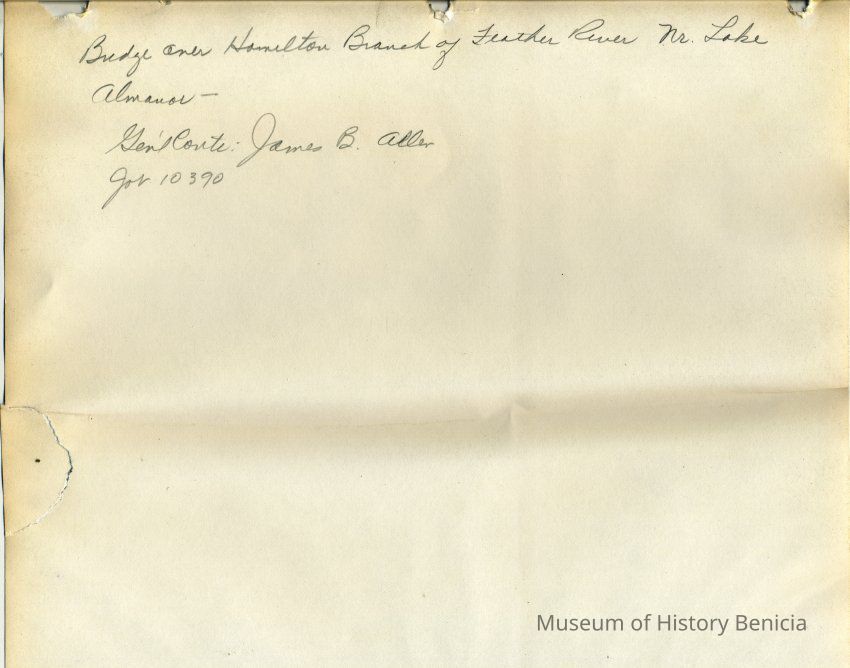 Bridge over Hamilton Branch of Feather River Nr. Lake
Almanor —
Gen'l Contr: James B. Allen
Job 10390
Museum of History Benicia